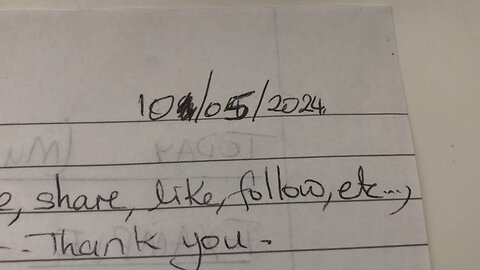 10/05/2024
e, share, like, follow, etc...,
-- Thank you.
TODAY